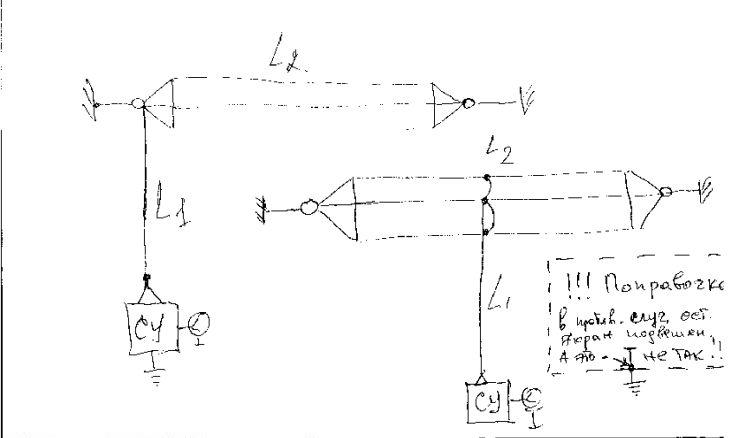 L2
L1
СУ
1
L2
L1
СУ
1
!!! Поправочка
в против. случ. ост.
экран подвешен,
А это - НЕ ТАК!!